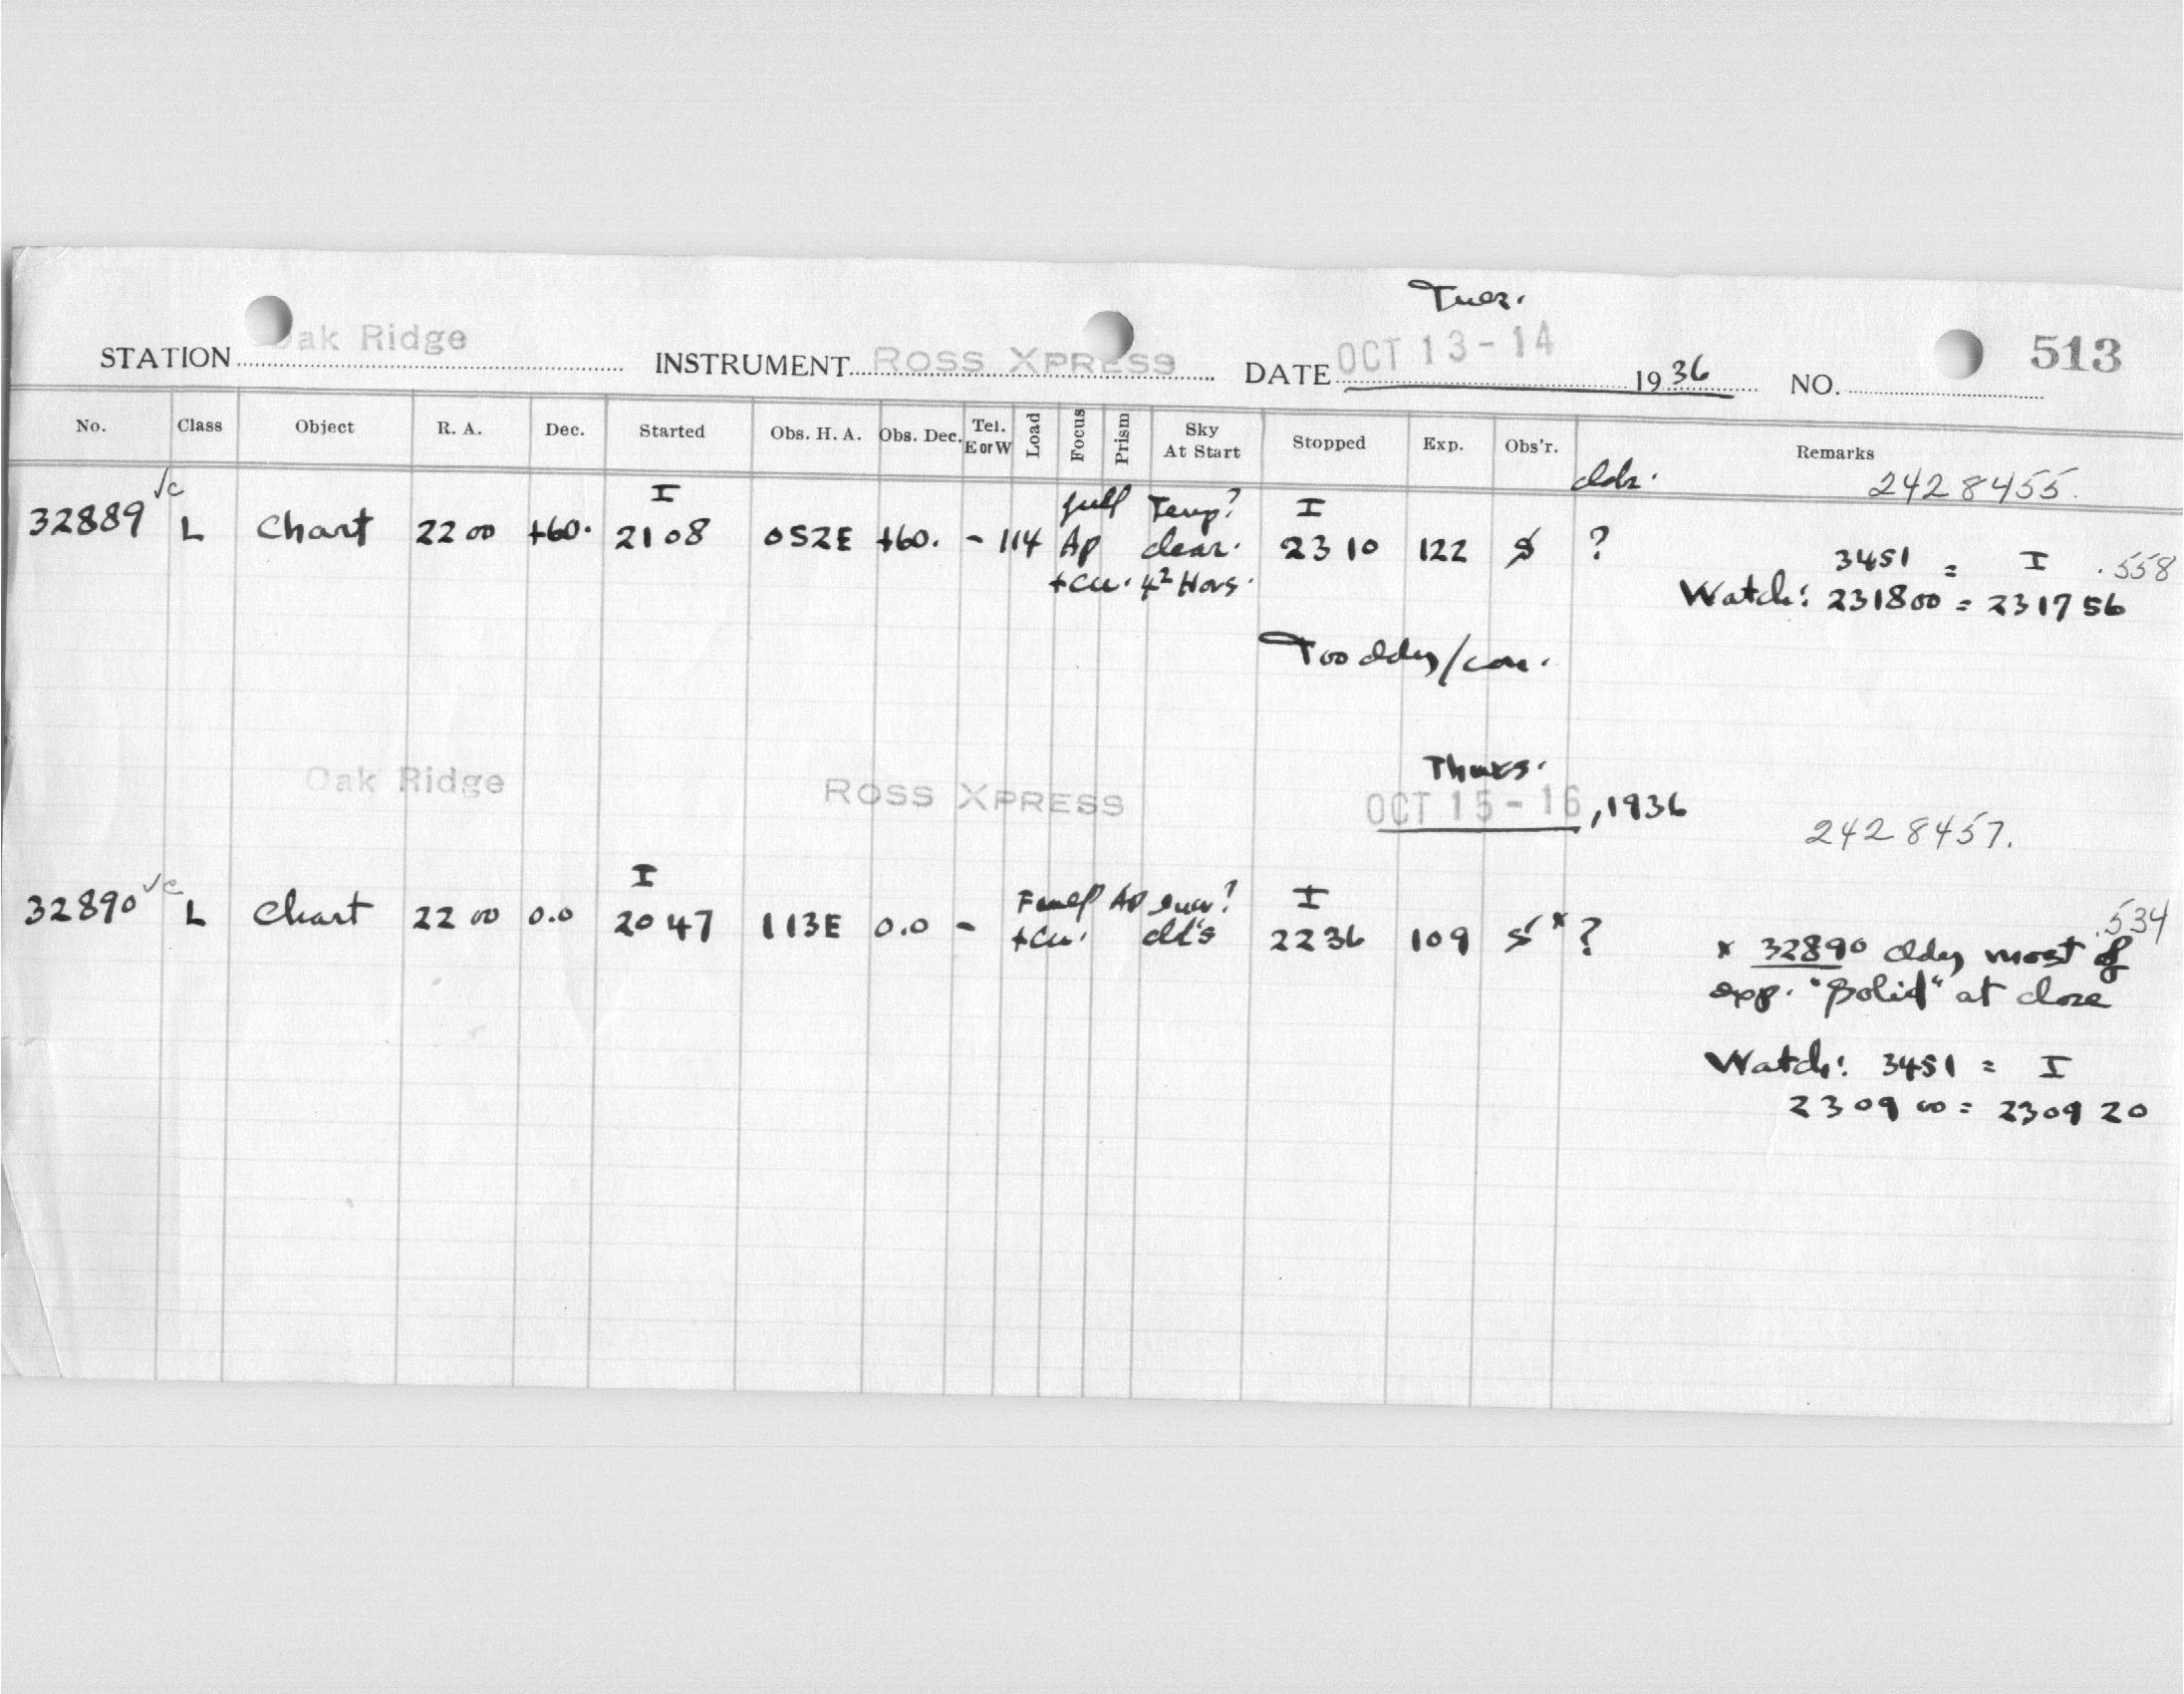 Tues.
STATION Oak Ridge INSTRUMENT ROSS XPRESS DATE OCT 13-14 1936 NO. 513
No. Class Object R. A. Dec. Started Obs. H. A. Obs. Dec. Tel. E or W Load Focus Prism Sky At Start Stopped Exp. Obs'r. Remarks
2428455.
I full Temp? I
32889 √c L Chart 22 00 +60. 21 08 052E +60. - 114 Ap clear. 23 10 122 S ?
+Cu. 4² Hors.
3451 = I .558
Watch: 231800 = 231756
Too cldy/
Thurs.
Oak Ridge ROSS XPRESS OCT 15-16, 1936
2428457.
I Ap ? I
32890 √c L Chart 22 00 0.0 20 47 113E 0.0 - +Cu. cld's 22 36 109 S x ?
.534
x 32890 cldy most of
exp. "Solid" at close
Watch: 3451 = I
2309 00 = 2309 20